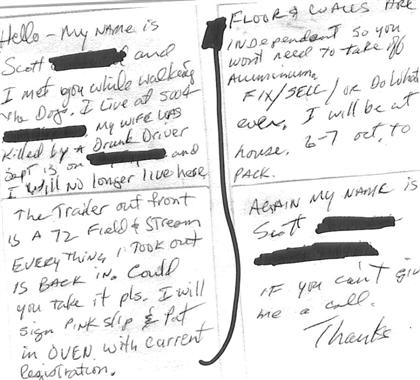 Hello - My NAME is
Scott and
I met you while walking
the Dogs. I live at 5004
My wife was
Killed by A Drunk Driver
Sept 13 on and
I will No longer live here
The Trailer out front
is A 72 Field & Stream
EVERYTHING I TOOK out
IS BACK IN. Could
you take it pls. I will
sign PINK slip & Put
in OVEN with current
Registration.
FLOOR & WALLS ARE
INDEPENDENT SO you
wont need to take off
Aluminum.
FIX/SELL/OR Do What
ever. I will be at
house. 6-7 oct, to
PACK.
AGAIN MY NAME is
Scott
IF you can't giv
me a call.
Thanks